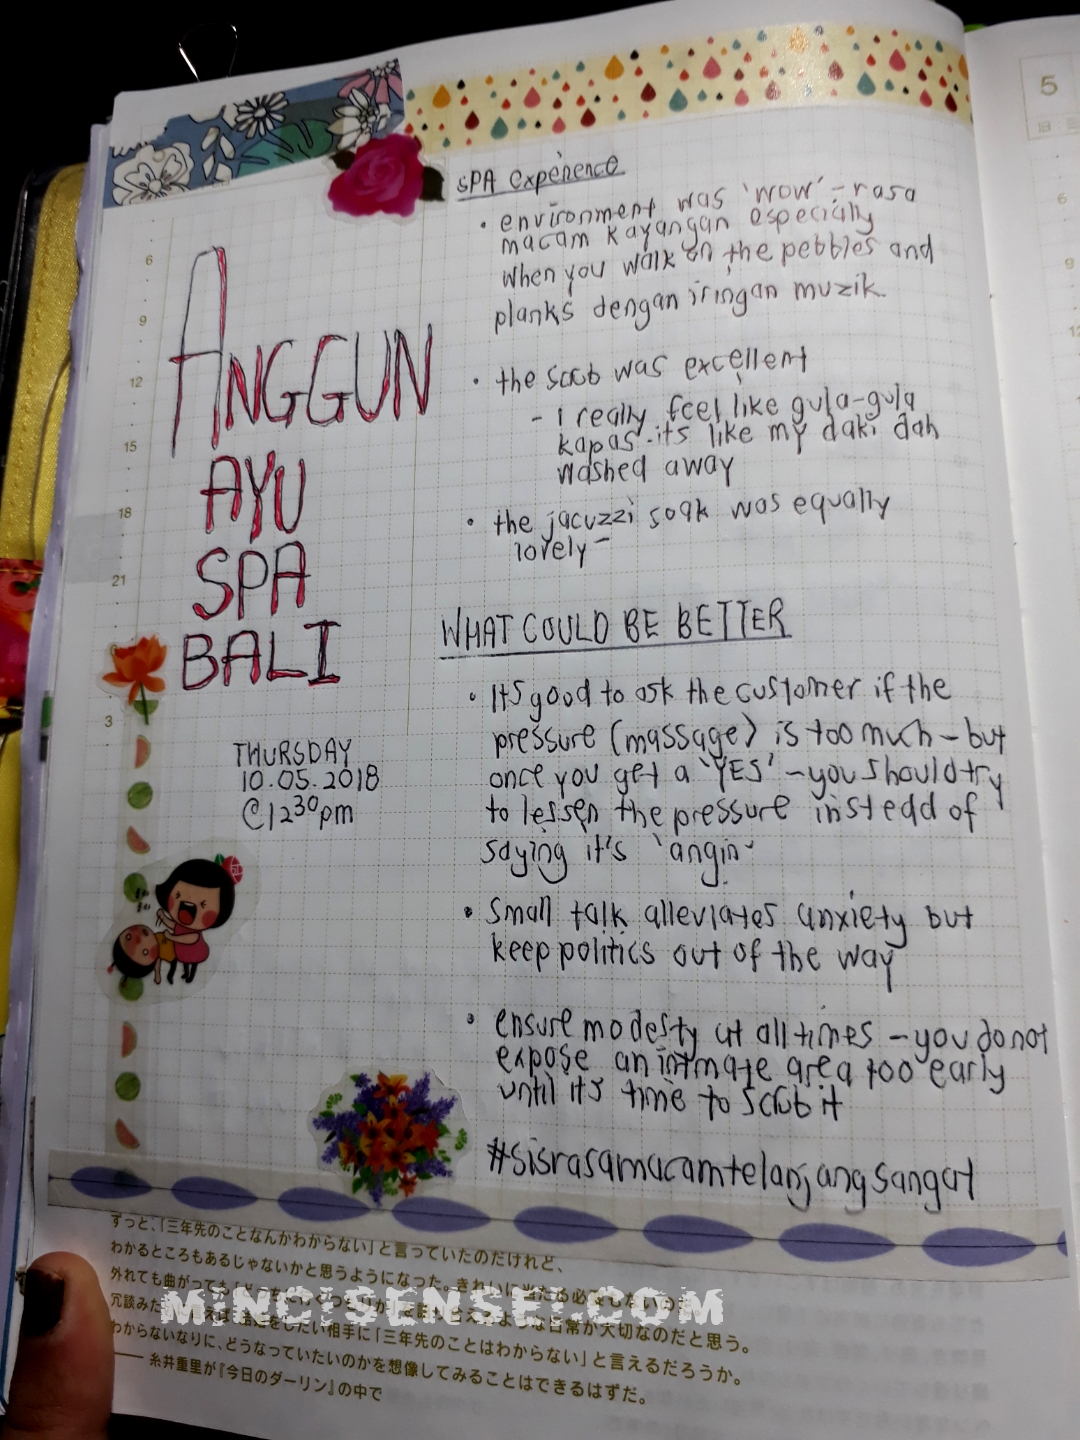 ANGGUN
AYU
SPA
BALI
THURSDAY
10.05.2018
@1230pm
SPA experience
• environment was 'wow' - rasa
macam kayangan especially
when you walk on the pebbles and
planks dengan iringan muzik.
• the scrub was excellent
- i really feel like gula-gula
kapas - its like my daki dah
washed away
• the jacuzzi soak was equally
lovely -
WHAT COULD BE BETTER
• It's good to ask the customer if the
pressure (massage) is too much - but
once you get a 'YES' - you should try
to lessen the pressure instead of
saying it's 'angin'
• Small talk alleviates anxiety but
keep politics out of the way
• ensure modesty at all times - you do not
expose an intimate area too early
until it's time to scrub it
#sisrasamacamtelanjangsangat
6
9
12
15
18
21
3
5
6
9
12
ずっと、「三年先のことなんかわからない」と言っていたのだけれど、
わかるところもあるじゃないかと思うようになった。きれいに当たる必要もないのさ。
外れても曲がっても
冗談みたい
日常が大切なのだと思う。
結婚をしたい相手に「三年先のことはわからない」と言えるだろうか。
わからないなりに、どうなっていたいのかを想像してみることはできるはずだ。
―― 糸井重里が『今日のダーリン』の中で
MINCISENSEI.COM